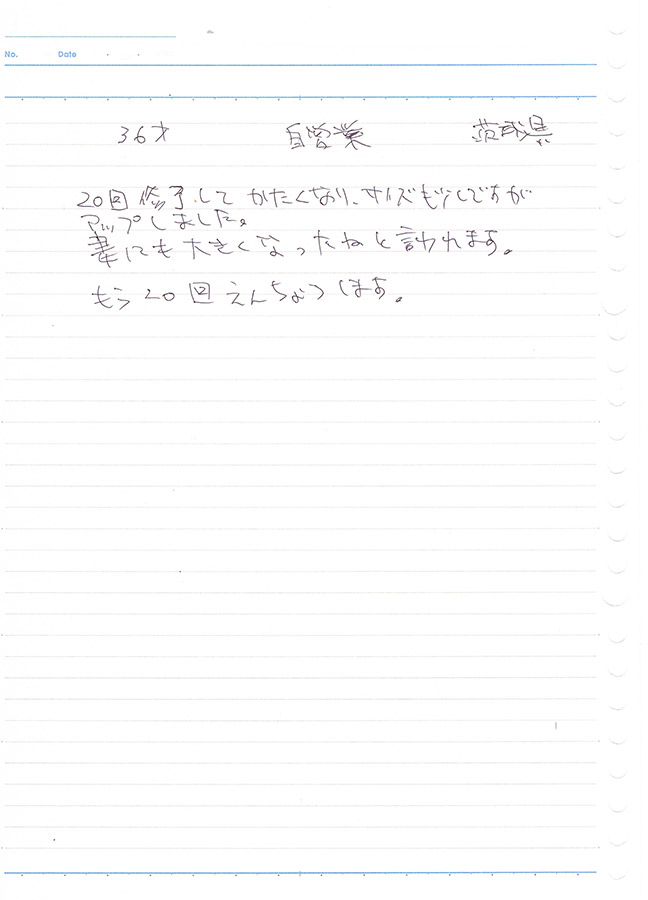 No.　Date
36才　自営業　茨城県
20回修了して かたくなり、サイズも少しですが
アップしました。
妻にも大きくなったねと言われます。
もう20回えんちょうします。